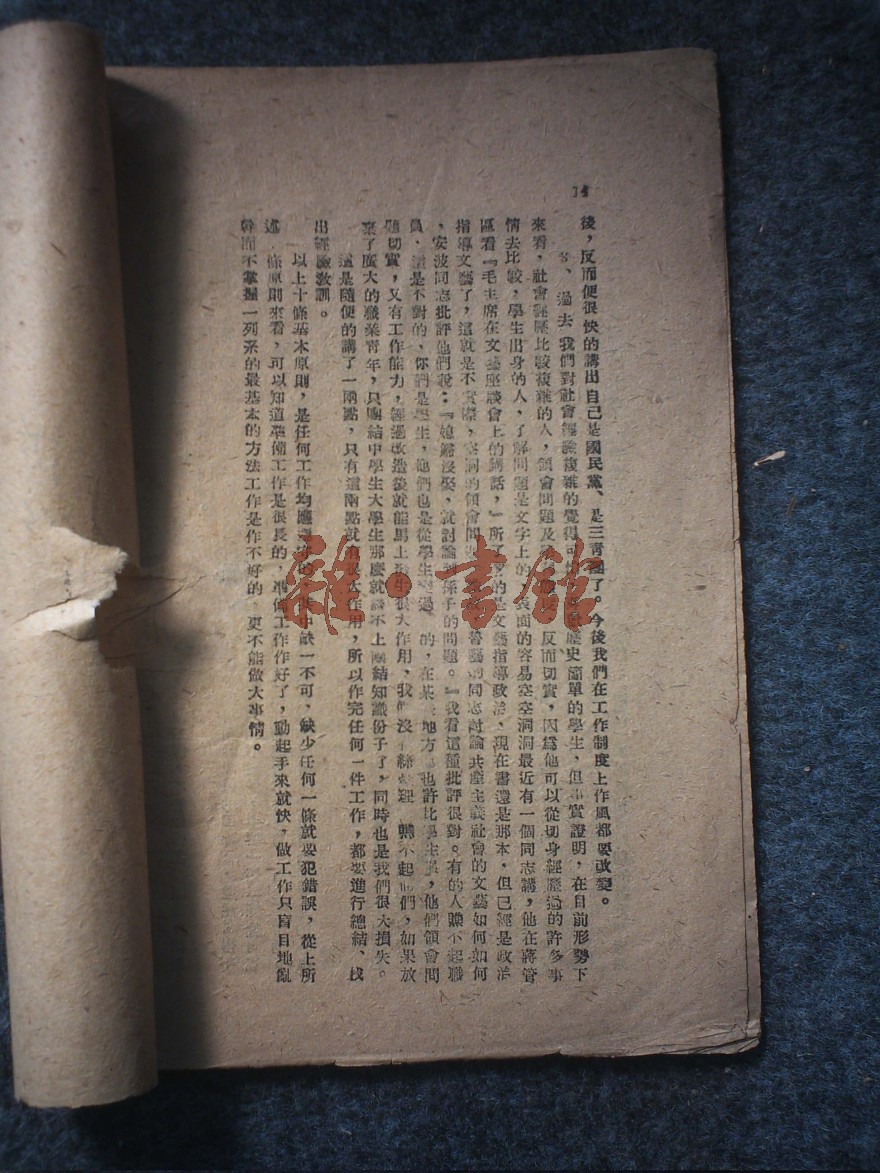 14
後，反而便很快的講出自己是國民黨、是三青團了。今後我們在工作制度上作風都要改變。
過去我們對社會經驗複雜的覺得可怕，歷史簡單的學生，但事實證明，在目前形勢下
來看，社會經歷比較複雜的人，領會問題及反而切實，因爲他可以從切身經歷過的許多事
情去比較，學生出身的人，了解問題是文字上的表面的容易空空洞洞最近有一個同志講，他在蔣管
區看『毛主席在文藝座談會上的講話，』所了解的是文藝指導政治，現在書還是那本，但已經是政治
指導文藝了，這就是不實際，空洞的領會問題藝的同志討論共產主義社會的文藝如何如何
，安波同志批評他們說：『媳婦沒娶，就討論到孫子的問題。』我看這種批評很對。有的人瞧不起職
員，還是不對的，你們是學生，他們也是從學生過的，在某地方也許比學生，他們領會問
題切實，又有工作能力，經過改造後就能馬上發生很大作用，我們沒有瞧不起他們，如果放
棄了廣大的職業青年，只團結中學生大學生那麼就談不上團結知識份子了，同時也是我們很大損失。
這是隨便的講了一兩點，只有這兩點就有很大作用，所以作完任何一件工作，都要進行總結、找
出經驗教訓。
以上十條基本原則，是任何工作均應的，其中缺一不可，缺少任何一條就要犯錯誤，從上所
述條原則來看，可以知道準備工作是很長的，準備工作作好了，動起手來就快，做工作只盲目地亂
幹而不掌握一列系的最基本的方法工作是作不好的，更不能做大事情。
雜·書館